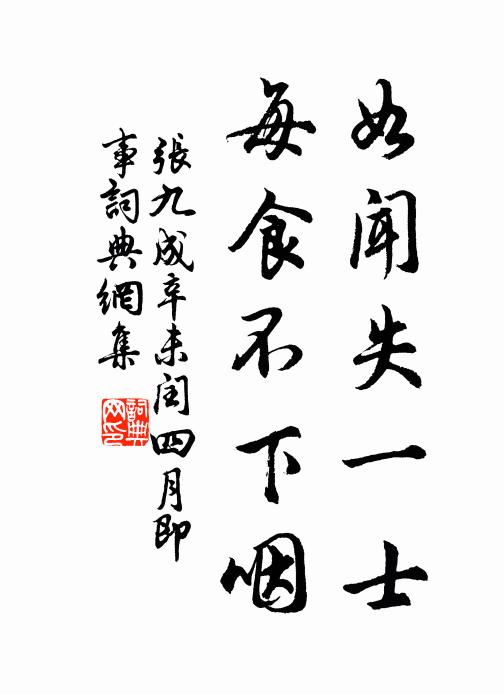 如闻失一士
每食不下咽
張九成辛未闰四月即
事詞典網集
詞典
网印